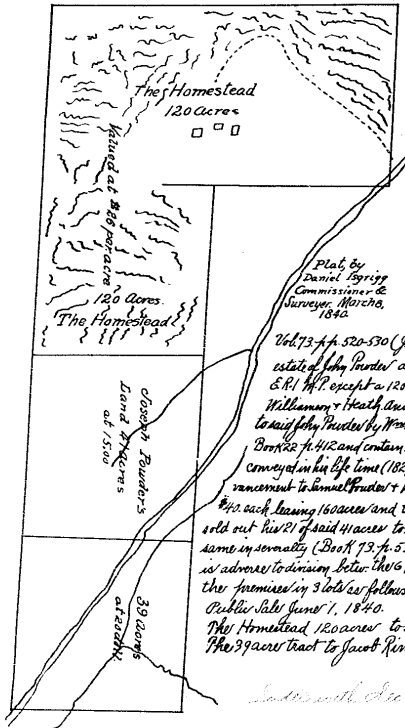 The Homestead
120 Acres
Valued at $26 per acre
120 Acres.
The Homestead
Plat, by
Daniel Isgrigg
Commissioner &
Surveyor. March 8,
1840.
Joseph Powder's
Land 41 acres
at 15.00
39 acres
Vol. 73. p.p. 520-530 (J
estate of John Powder a
E.R.1 M.P. except a 120
Williamson & Heath. And
to said John Powder by
Book 22 p. 412 and contain
conveyed in his life time (182
vancement to Samuel Powder &
$40. each leaving 160 acres and
sold out his 21 of said 41 acres to
same in severalty (Book 73. p. 5
is adverse to division betw. the 6
the premises in 3 lots as follows
Public Sale June 1, 1840.
The Homestead 120 acres to
The 39 acre tract to Jacob